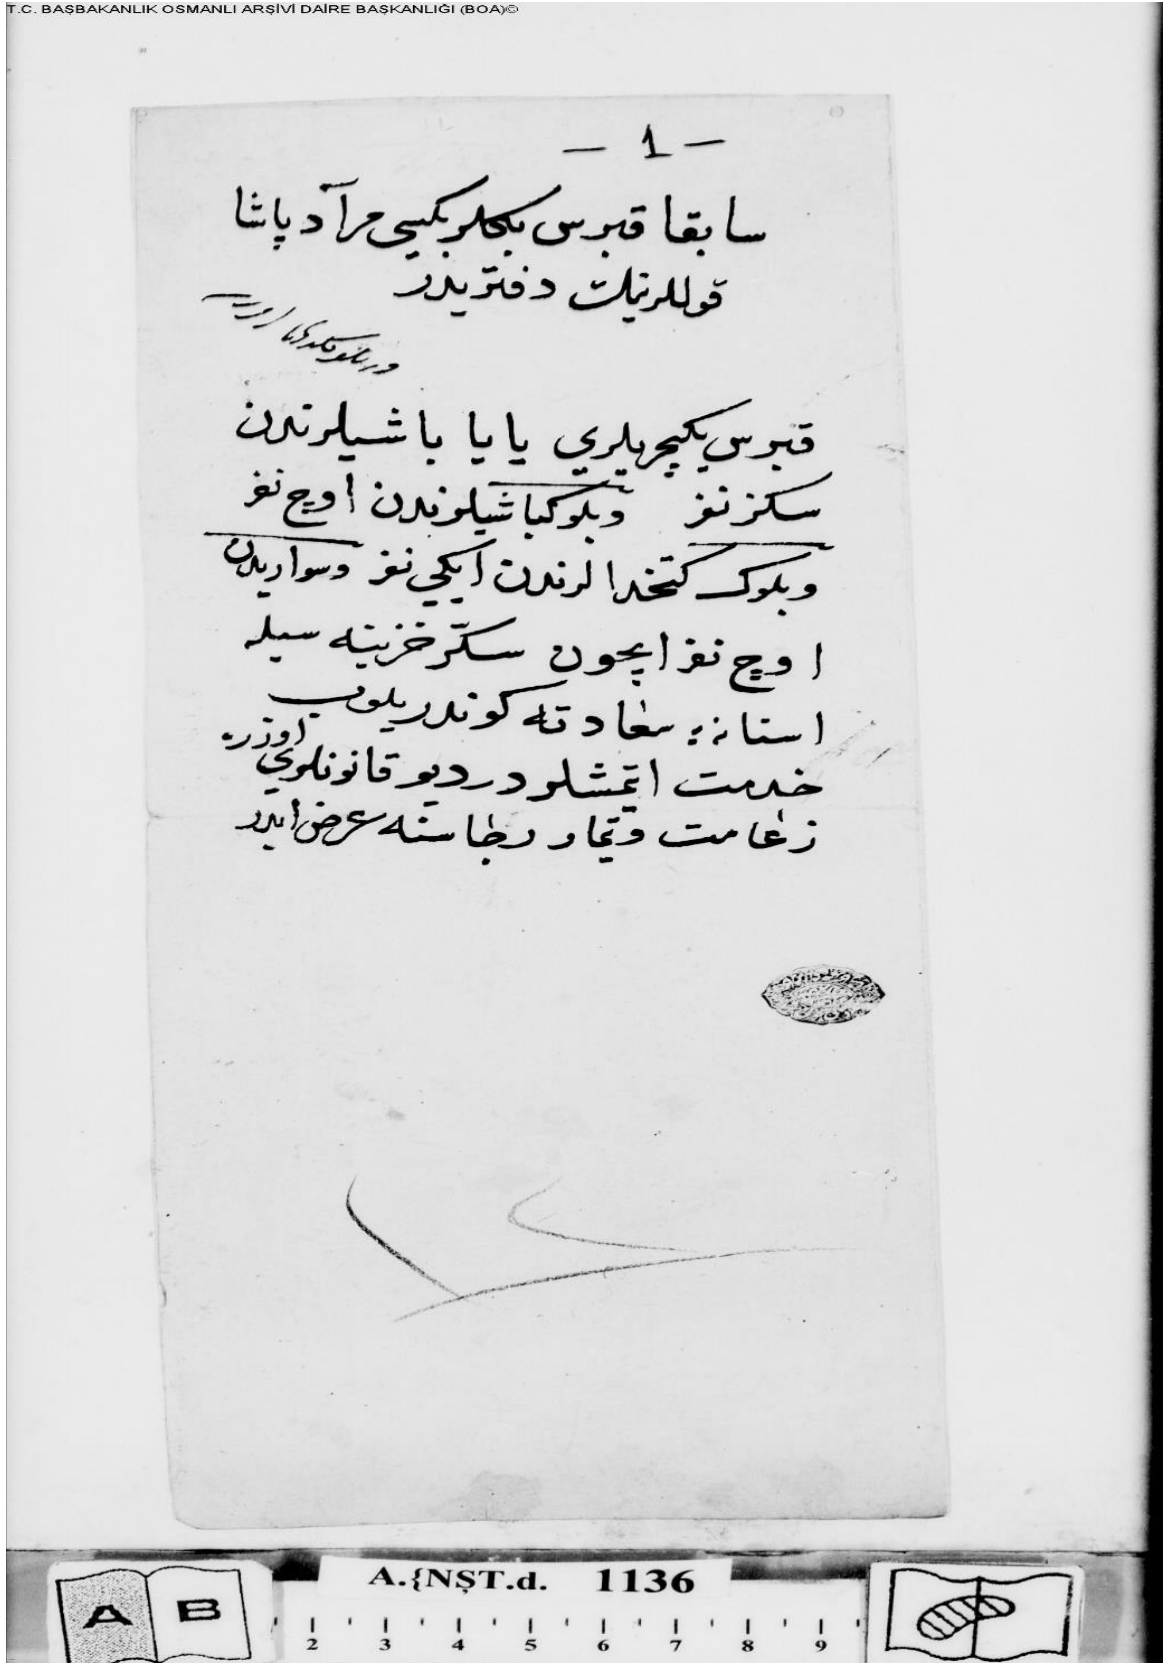 T.C. BAŞBAKANLIK OSMANLI ARŞİVİ DAİRE BAŞKANLIĞI (BOA)©
- 1 -
سابقا قبرس بكلربكيسى مراد پاشا
قوللرينك دفتريدر
قبرس يكيچريلري يايا باشيلرندن
سكز نفر وبلوكباشيلرندن اوچ نفر
وبلوك كتخدالرندن ايكي نفر وسواريدن
اوچ نفر ايچون سكّز خزينه سيله
استانهٔ سعادته كوندريلوب
خدمت ايتمشلردر ديو قانونلري اوزره
زعامت وتيمار رجاسنه عرض ايدر
A.{NŞT.d. 1136
A B
2 3 4 5 6 7 8 9